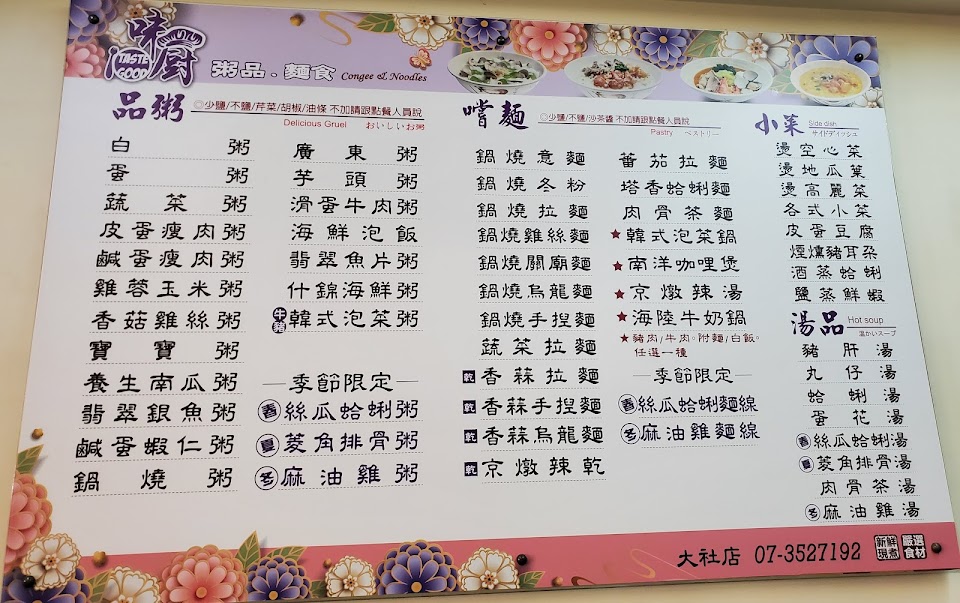 味廚
TASTE GOOD
粥品.麵食 Congee & Noodles
品粥 ◎少鹽/不鹽/芹菜/胡椒/油條 不加請跟點餐人員說
Delicious Gruel おいしいお粥
白粥
蛋粥
蔬菜粥
皮蛋瘦肉粥
鹹蛋瘦肉粥
雞蓉玉米粥
香菇雞絲粥
寶寶粥
養生南瓜粥
翡翠銀魚粥
鹹蛋蝦仁粥
鍋燒粥
廣東粥
芋頭粥
滑蛋牛肉粥
海鮮泡飯
翡翠魚片粥
什錦海鮮粥
牛豬 韓式泡菜粥
—季節限定—
春 絲瓜蛤蜊粥
夏 菱角排骨粥
冬 麻油雞粥
嚐麵 ◎少鹽/不鹽/沙茶醬 不加請跟點餐人員說
Pastry ペストリー
鍋燒意麵
鍋燒冬粉
鍋燒拉麵
鍋燒雞絲麵
鍋燒關廟麵
鍋燒烏龍麵
鍋燒手捏麵
蔬菜拉麵
乾 香蒜拉麵
乾 香蒜手捏麵
乾 香蒜烏龍麵
乾 京燉辣乾
蕃茄拉麵
塔香蛤蜊麵
肉骨茶麵
★韓式泡菜鍋
★南洋咖哩煲
★京燉辣湯
★海陸牛奶鍋
★豬肉/牛肉。附麵/白飯。
任選一種
—季節限定—
春 絲瓜蛤蜊麵線
冬 麻油雞麵線
小菜 Side dish
サイドディッシュ
燙空心菜
燙地瓜葉
燙高麗菜
各式小菜
皮蛋豆腐
煙燻豬耳朶
酒蒸蛤蜊
鹽蒸鮮蝦
湯品 Hot soup
温かいスープ
豬肝湯
丸仔湯
蛤蜊湯
蛋花湯
春 絲瓜蛤蜊湯
夏 菱角排骨湯
肉骨茶湯
冬 麻油雞湯
大社店 07-3527192 新鮮現煮 嚴選食材